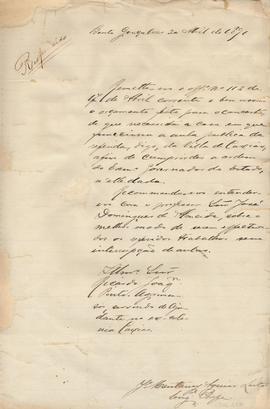 Bento Gonçalves 20 Abril de 1891
Respondido
Remetto-vos o off.º Nº 112 de
de Abril corrente e bem assim
o orçamento feito para o concerto
de que necessita a casa em que
funcciona a aula publica da
digo, da Villa de Caxias,
afim de cumprirdes a ordem
do Governador do Estado,
n'elle dada.
Recommendo-vos entender-
vos com o professor Snr José
Domingues de Almeida, sobre o
melhor modo de serem efectua-
dos os trabalhos sem
interrupção da aula.
Illmo Snr
Ricardo Joaqm
Pinto
servindo de Aju-
dante na ex-colo-
nia Caxias
Engº Chefe